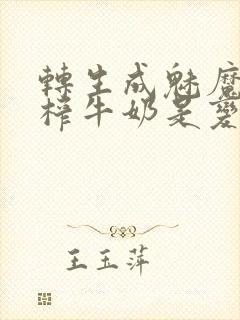 轉生成魅魔
榨牛奶是變
王玉萍